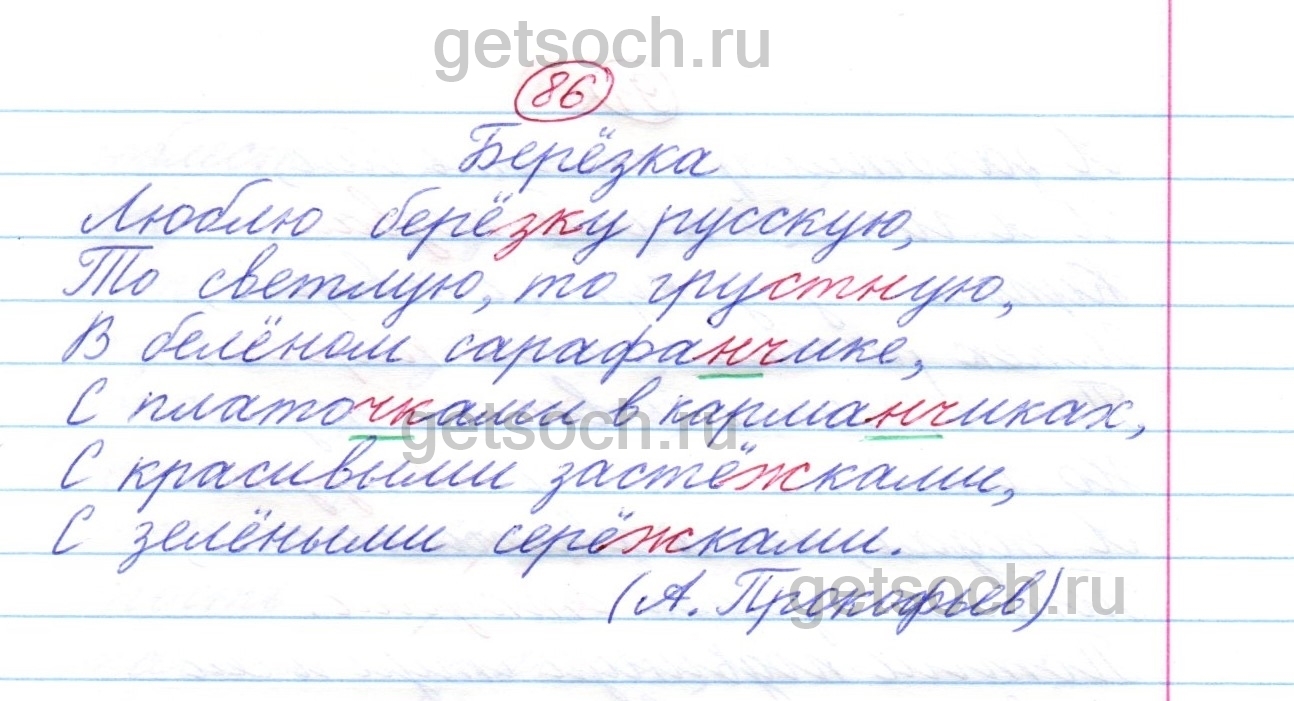 getsoch.ru
86
Берёзка
Люблю берёзку русскую,
То светлую, то грустную,
В белёном сарафанчике,
С платочками в карманчиках,
getsoch.ru
С красивыми застёжками,
С зелёными серёжками.
(А. Прокофьев)
getsoch.ru